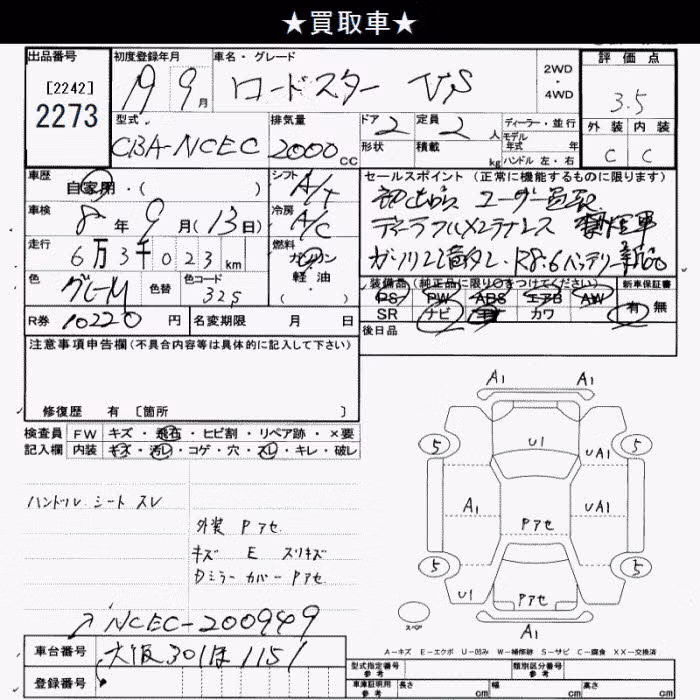 ★買取車★
出品番号 初度登録年月 車名・グレード 評価点
[2242] 19 9月 ロードスター VS 2WD・4WD 3.5
2273
型式 排気量 ドア 定員 ディーラー・並行 外装 内装
CBA-NCEC 2000cc 2 2人 モデル年式 年
形状 積載 kg ハンドル 左・右 C C
車歴 シフト セールスポイント(正常に機能するものに限ります)
自家用・( ) A/T 初出品 ユーザー買取
車検 冷房
8年9月(13日) A/C ディーラーメンテナンス 禁煙車
走行 燃料
6万3千023km ガソリン R8.6バッテリー新品
軽油
色 色替 色コード ( ) 装備品(純正品に限り○をつけてください) 新車保証書
グレーM 32S PS PW ABS エアB AW 有 無
R券 10220円 名変期限 月 日 SR ナビ カワ
後日品
注意事項申告欄(不具合内容等は具体的に記入して下さい)
修復歴 有 [箇所 ]
検査員 FW キズ・飛石・ヒビ割・リペア跡・×要
記入欄 内装 キズ・汚レ・コゲ・穴・スレ・キレ・破レ
ハンドル シート スレ
外装 Pアセ
キズ E スリキズ
Dミラーカバー Pアセ
A1 A1
5 U1 5
UA1
A1 Pアセ UA1
5 5
U1 Pアセ
スペア A1
NCEC-200949
A-キズ E-エクボ U-凹み W-補修跡 S-サビ C-腐食 XX-交換済
車台番号 大阪301ほ1151
登録番号
型式指定番号 参考 類別区分番号 参考
車庫証明用 参考 長さ cm 幅 cm 高さ cm